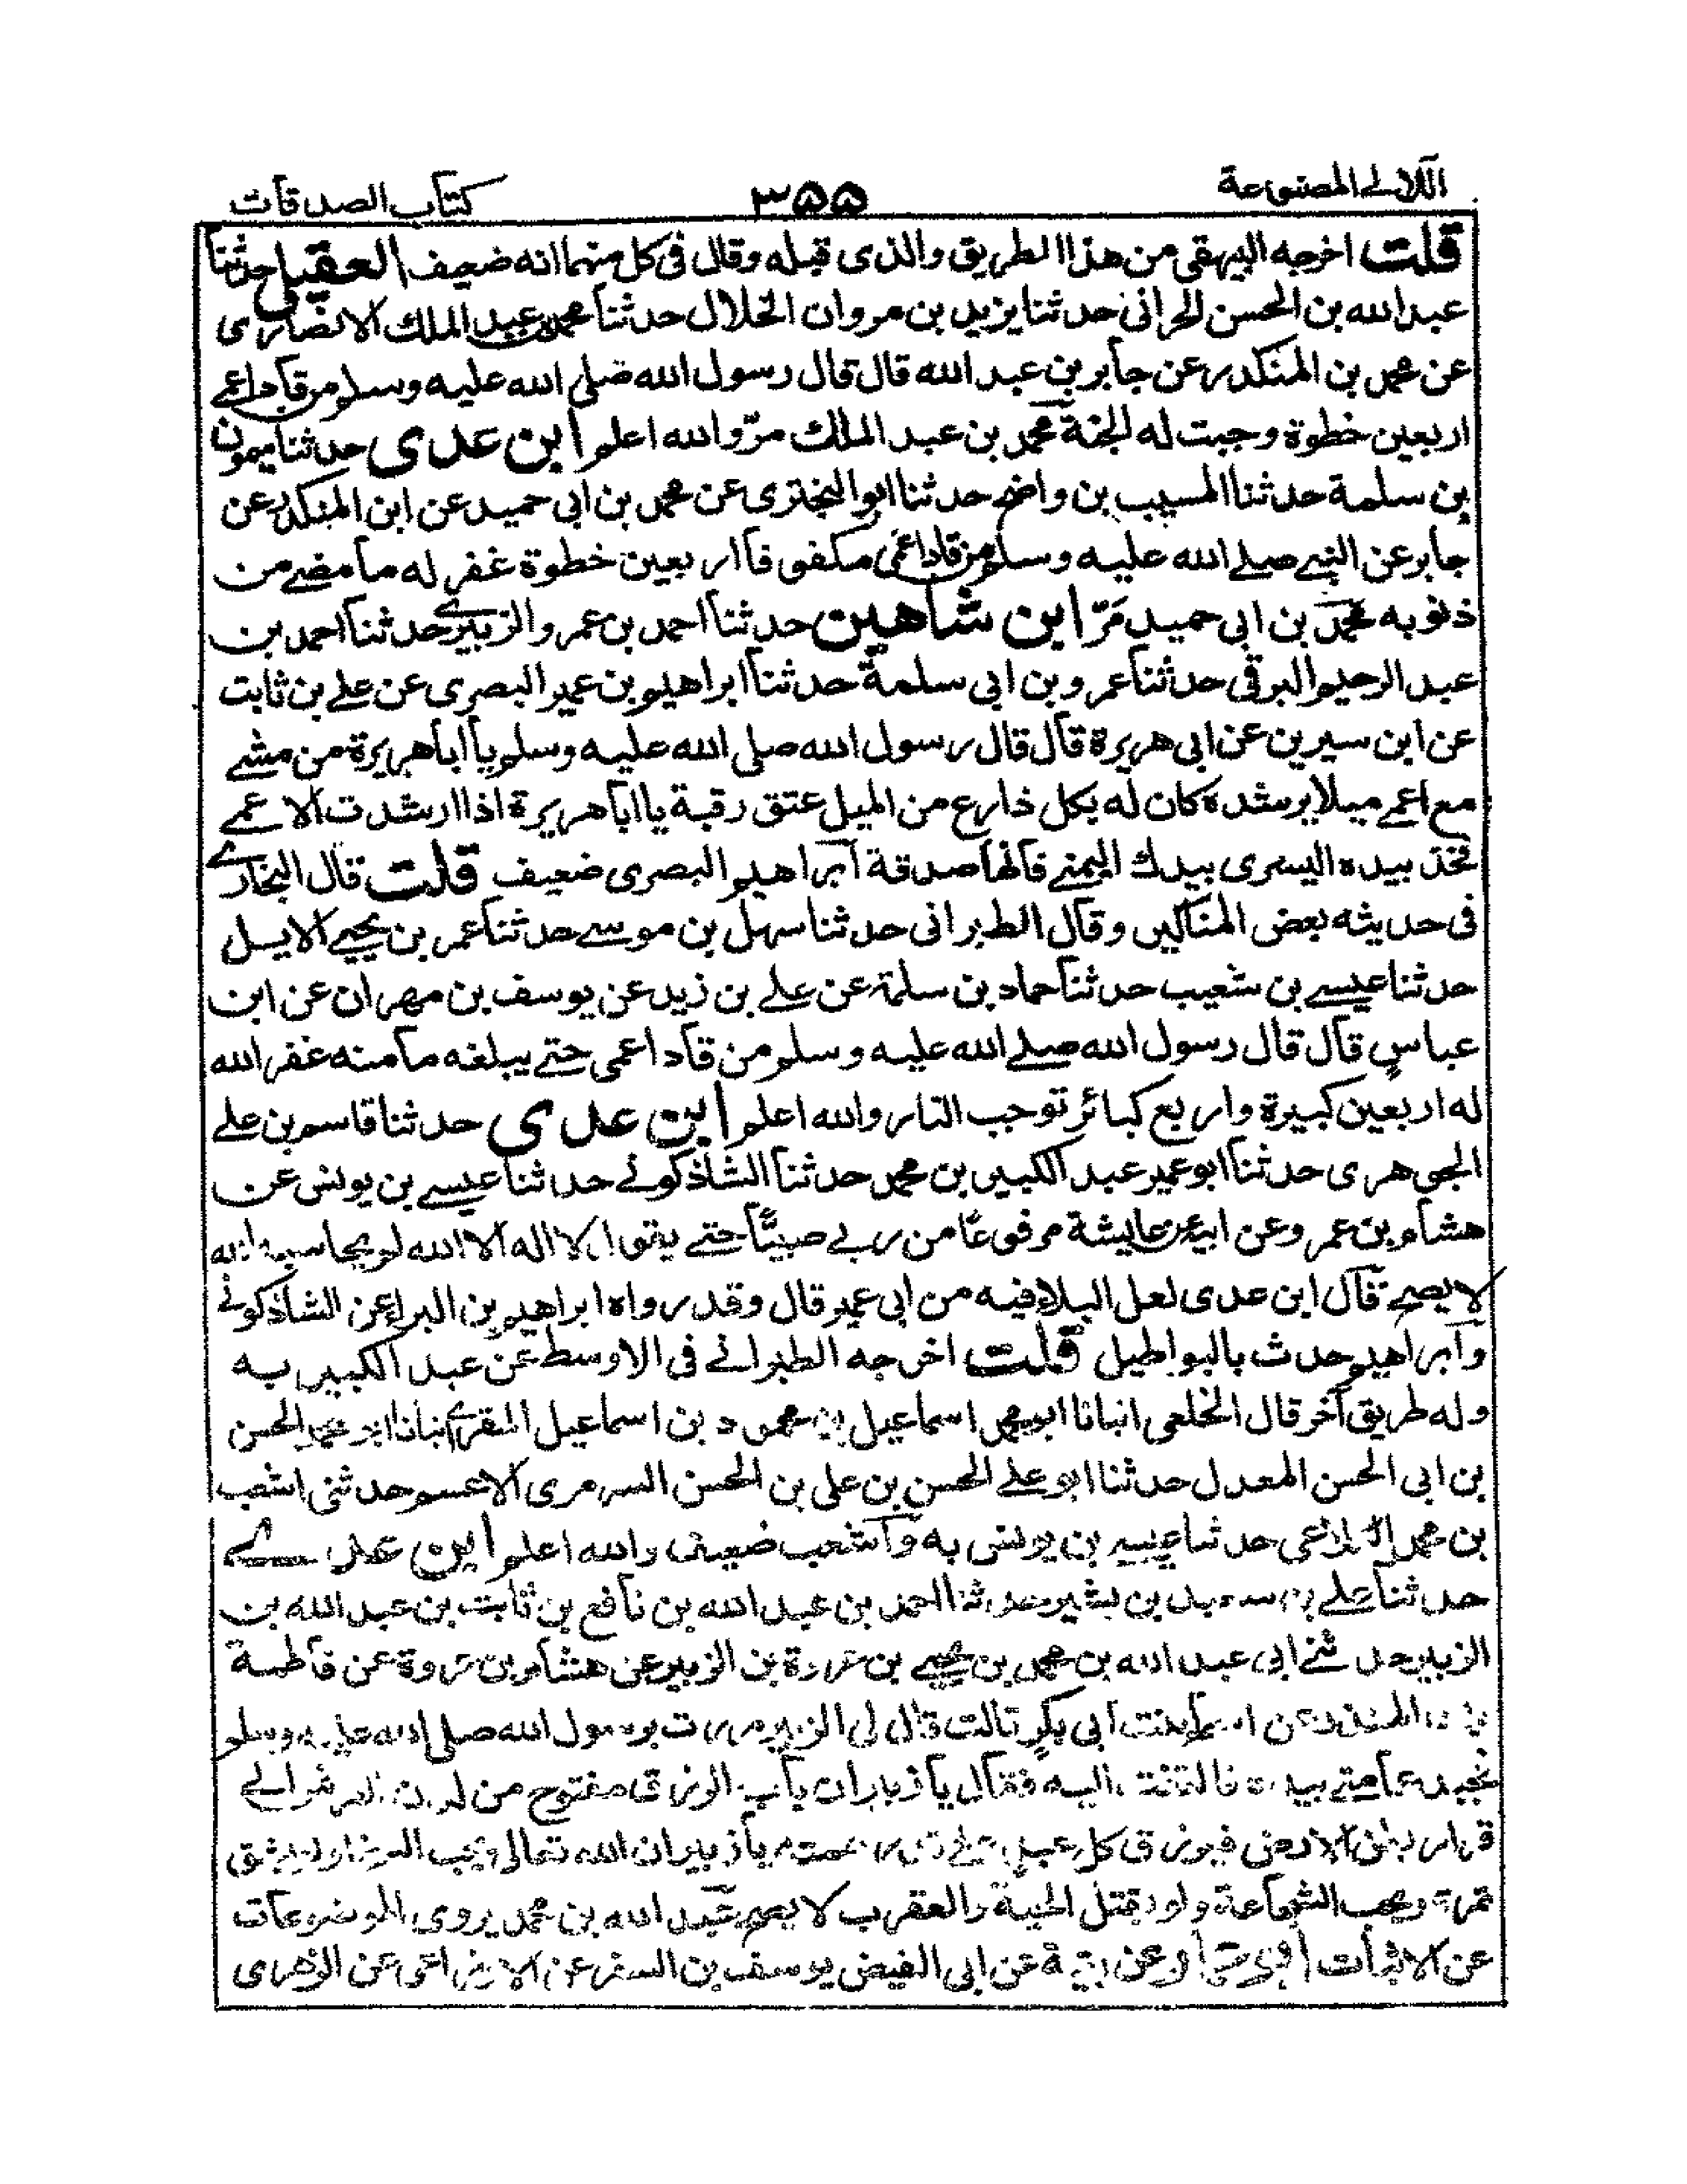 اللآلي المصنوعة
٣٥٥
كتاب الصدقات
قلت اخرجه البيهقى من هذا الطريق والذى قبله وقال فى كل منهما انه ضعيف العقيلى حدثنا
عبد الله بن الحسن الحرانى حدثنا يزيد بن مروان الخلال حدثنا محمد بن عبد الملك الانصارى
عن محمد بن المنكدر عن جابر بن عبد الله قال قال رسول الله صلى الله عليه وسلم من قاد اعمى
اربعين خطوة وجبت له الجنة محمد بن عبد الملك مرّ والله اعلم ابن عدى حدثنا ميمون
بن سلمة حدثنا المسيب بن واضح حدثنا ابو البخترى عن محمد بن ابى حميد عن ابن المنكدر عن
جابر عن النبى صلى الله عليه وسلم من قاد اعمى مكفوفا اربعين خطوة غفر له ما مضى من
ذنوبه محمد بن ابى حميد مَرّ ابن شاهين حدثنا احمد بن عمر والزبيرى حدثنا احمد بن
عبد الرحيم البرقى حدثنا عمرو بن ابى سلمة حدثنا ابراهيم بن عمير البصرى عن على بن ثابت
عن ابن سيرين عن ابى هريرة قال قال رسول الله صلى الله عليه وسلم يا ابا هريرة من مشى
مع اعمى ميلا يرشده كان له بكل ذارع من الميل عتق رقبة يا ابا هريرة اذا ارشدت الاعمى
فخذ بيده اليسرى بيدك اليمنى فانها صدقة ابراهيم البصرى ضعيف قلت قال البخارى
فى حديثه بعض المناكير وقال الطبرانى حدثنا سهل بن موسى حدثنا عمر بن يحيى الايلى
حدثنا عيسى بن شعيب حدثنا حماد بن سلمة عن على بن زيد عن يوسف بن مهران عن ابن
عباس قال قال رسول الله صلى الله عليه وسلم من قاد اعمى حتى يبلغه مامنه غفر الله
له اربعين كبيرة واربع كبائر توجب النار والله اعلم ابن عدى حدثنا قاسم بن على
الجوهرى حدثنا ابو عمير عبد الكبير بن محمد حدثنا الشاذكونى حدثنا عيسى بن يونس عن
هشام بن عمرو عن ابيه عن عايشة مرفوعا من ربى صبيًّا حتى يقول لا اله الا الله لم يحاسبه الله
لا يصح قال ابن عدى لعل البلاء فيه من ابى عمير قال وقد رواه ابراهيم بن البراء عن الشاذكونى
وابراهيم حدث بالبواطيل قلت اخرجه الطبرانى فى الاوسط عن عبد الكبير به
وله طريق آخر قال الخلعى انبانا ابو محمد اسماعيل بن محمود بن اسماعيل المقرى انبانا ابو محمد الحسن
بن ابى الحسن المعدل حدثنا ابو على الحسن بن على بن الحسن السرمرى الاعسم حدثنى اشعب
بن محمد الكلاعى حدثنا عيسى بن يونس به واشعب ضعيف والله اعلم ابن عدى
حدثنا على بن سعيد بن بشير حدثنا احمد بن عبد الله بن نافع بن ثابت بن عبد الله بن
الزبير حدثنى ابى عبد الله بن محمد بن يحيى بن عروة بن الزبير عن هشام بن عروة عن فاطمة
المنذر عن اسما بنت ابى بكر قالت قال لى الزبير مررت برسول الله صلى الله عليه وسلم
عمامتى بيده فالتفت اليه فقال يا زبير ان باب الرزق مفتوح من لدن العرش الى
قرار بطن الارض فيرزق كل عبد على قدر همته يا زبير ان الله تعالى يحب السخاء ولو بشق
تمرة ويحب الشجاعة ولو بقتل الحية والعقرب لا يصح عبد الله بن محمد يروى الموضوعات
عن الاثبات عن ابى الفيض يوسف بن السفر عن الاوزاعى عن الزهرى